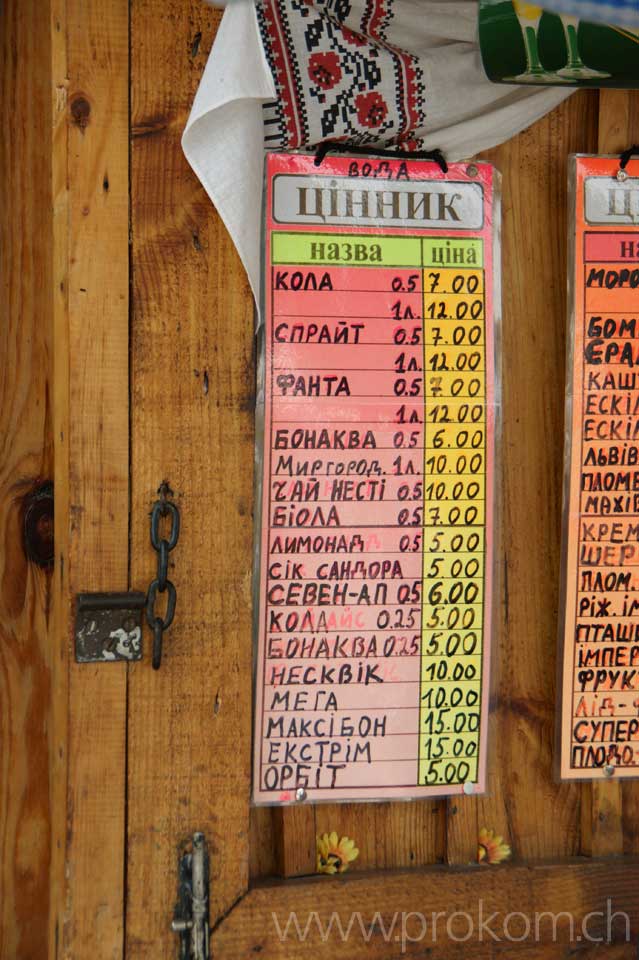 ВОДА
ЦІННИК
назва ціна
КОЛА 0.5 7.00
1л. 12.00
СПРАЙТ 0.5 7.00
1л. 12.00
ФАНТА 0.5 7.00
1л. 12.00
БОНАКВА 0.5 6.00
Миргород. 1л. 10.00
ЧАЙ НЕСТІ 0.5 10.00
БІОЛА 0.5 7.00
ЛИМОНАД 0.5 5.00
СІК САНДОРА 5.00
СЕВЕН-АП 0.5 6.00
КОЛА 0.25 5.00
БОНАКВА 0.25 5.00
НЕСКВІК 10.00
МЕГА 10.00
МАКСІБОН 15.00
ЕКСТРІМ 15.00
ОРБІТ 5.00
Ц
на
МОРО
БОМ
ЄРА
КАШ
ЕСКІ
ЕСКІ
ЛЬВІВ
ПЛОМБ
МАХІВ
КРЕМ
ШЕР
ПЛОМ.
РІЖ. ІМ
ПТАШ
ІМПЕР
ФРУК
ЛІД-
СУПЕР
ПЛОДО-
www.prokom.ch